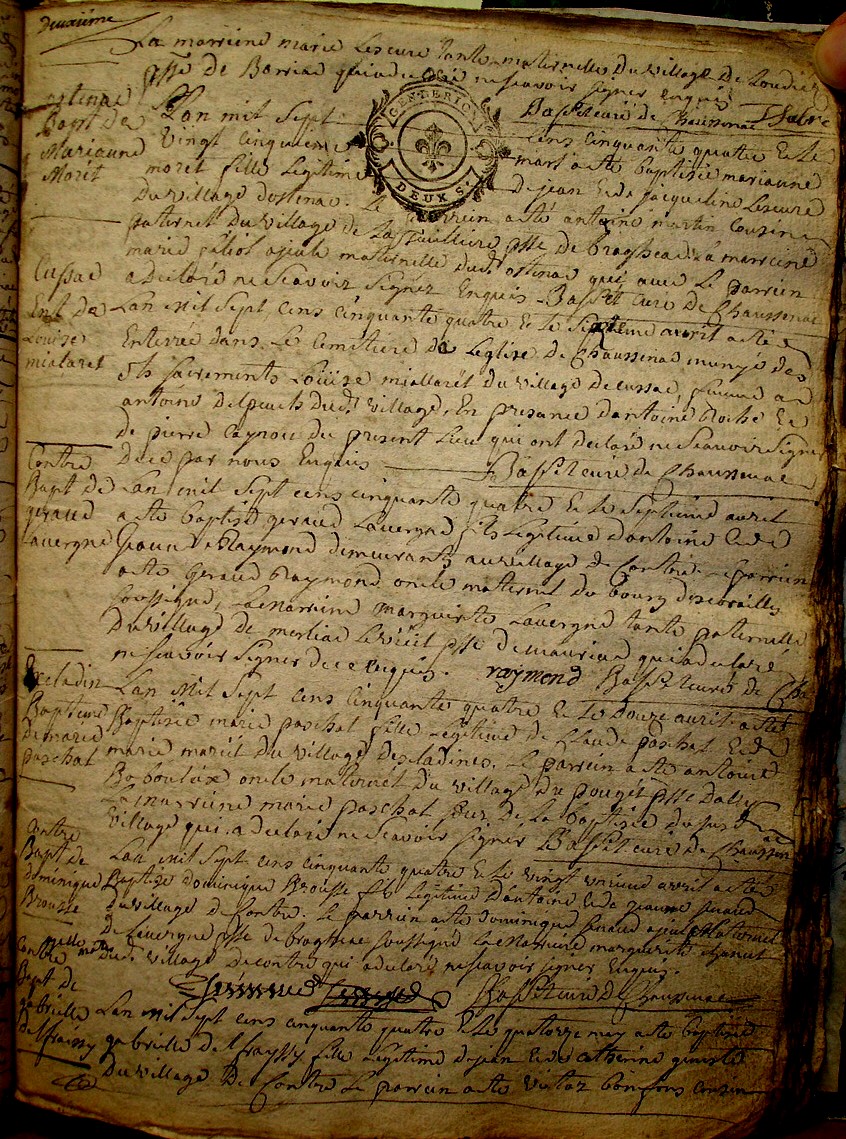 deuxieme
La marriene marie Lescure tante maternelle du village de
psse de Barriac qui a declaré ne scavoir signer enquis
Bassit curé de Chaussenac
ostenac
Bapt de
Marianne
Moret
GENT ERIO
DEUX S.
L'an mil sept cens cinquante quatre et le
vingt cinquieme mars a esté baptisée marianne
moret fille legitime de jean et de jacqueline Lescure
du village dostenac. Le parrien a esté antoine martin cousin
paternel du village de Lasvaissiere psse de braghac La marriene
marie ayeule maternelle dud. ostenac qui avec Le parrien
a declaré ne scavoir signer Enquis Bassit curé de Chaussenac
Cussac
Ent de
Louise
mialaret
Lan mil sept cens cinquante quatre et le septieme avril a esté
Enterrée dans Le cimetiere de Leglise de Chaussenac munye des
sts sacrements Louise miallaret du village de cussac, femme a
antoine delpeuch dud. village, En presance dantoine Roche et
de pierre Raynou du present Lieu qui ont declaré ne scavoir signer
de ce par nous Enquis Bassit curé de Chaussenac
Contre
Bapt de
geraud
Lavergne
Lan mil sept cens cinquante quatre et le septieme avril
a esté baptisé geraud Lavergne fils legitime dantoine et de
Jeanne Raymond demeurants au village de Contre. Le parrien
a esté Geraud Raymond oncle maternel du bourg descorailles
soussigné, La marriene marguerite Lavergne tante paternelle
du village de merliac psse de mauriac qui a declaré
ne scavoir signer de ce enquis. raymond Bassit curé de Cha
Escladines
Bapteme
de marie
paschal
Lan mil sept cens cinquante quatre et le douze avril a esté
Baptisée marie paschal fille Legitime de Claude paschal et de
marie mariet du village descladines. Le parrien a esté antoine
Bobouloux oncle maternel du village du pouget psse dally
La marriene marie paschal sœur de La baptisée du susd
village qui a declaré ne scavoir signer Bassit curé de Chaussenac
Contre
Bapt de
dominique
Brousse
Lan mil sept cens cinquante quatre et le vingt avril a esté
Baptisé dominique Brousse fils Legitime dantoine et de jeanne
du village de Contre. Le parrien a esté dominique ayeul Maternel
de Lavergne psse de braghac soussigné La marriene marguerite
du d. village de contre qui a declaré ne scavoir signer Enquis.
Bassit curé de Chaussenac
Contre
Bapt de
gabrielle
delfraissy
Lan mil sept cens cinquante quatre et le quatorze may a esté baptisée
gabrielle delfrayssy fille Legitime de jean et de catherine
du village de Contre Le parrien a esté victor bonfons cousin